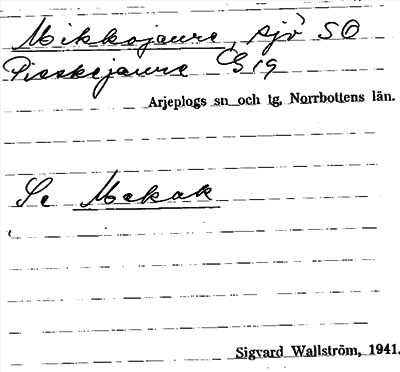 Mikkojaure, sjö SO
Pieskejaure G 19
Arjeplogs sn och tg, Norrbottens län.
Se Makak
Sigvard Wallström, 1941.